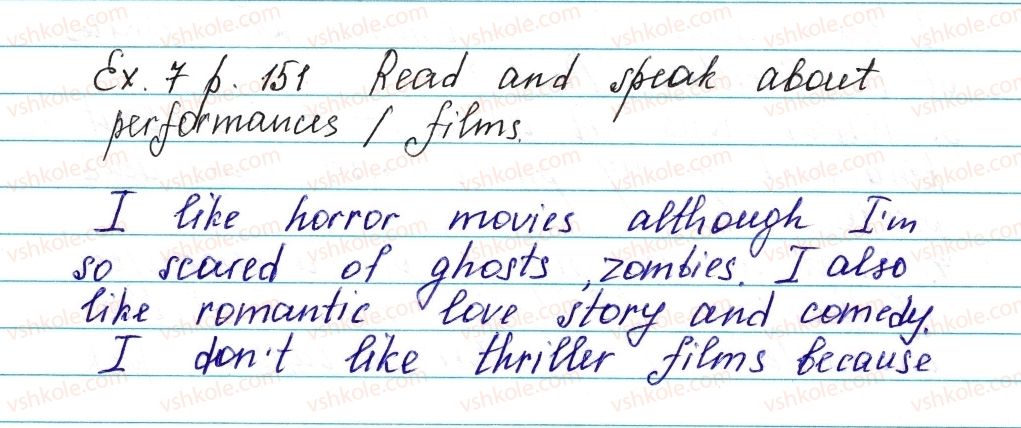 Ex. 7 p. 151 Read and speak about
performances / films.
I like horror movies although I'm
so scared of ghosts, zombies. I also
like romantic love story and comedy.
I don't like thriller films because